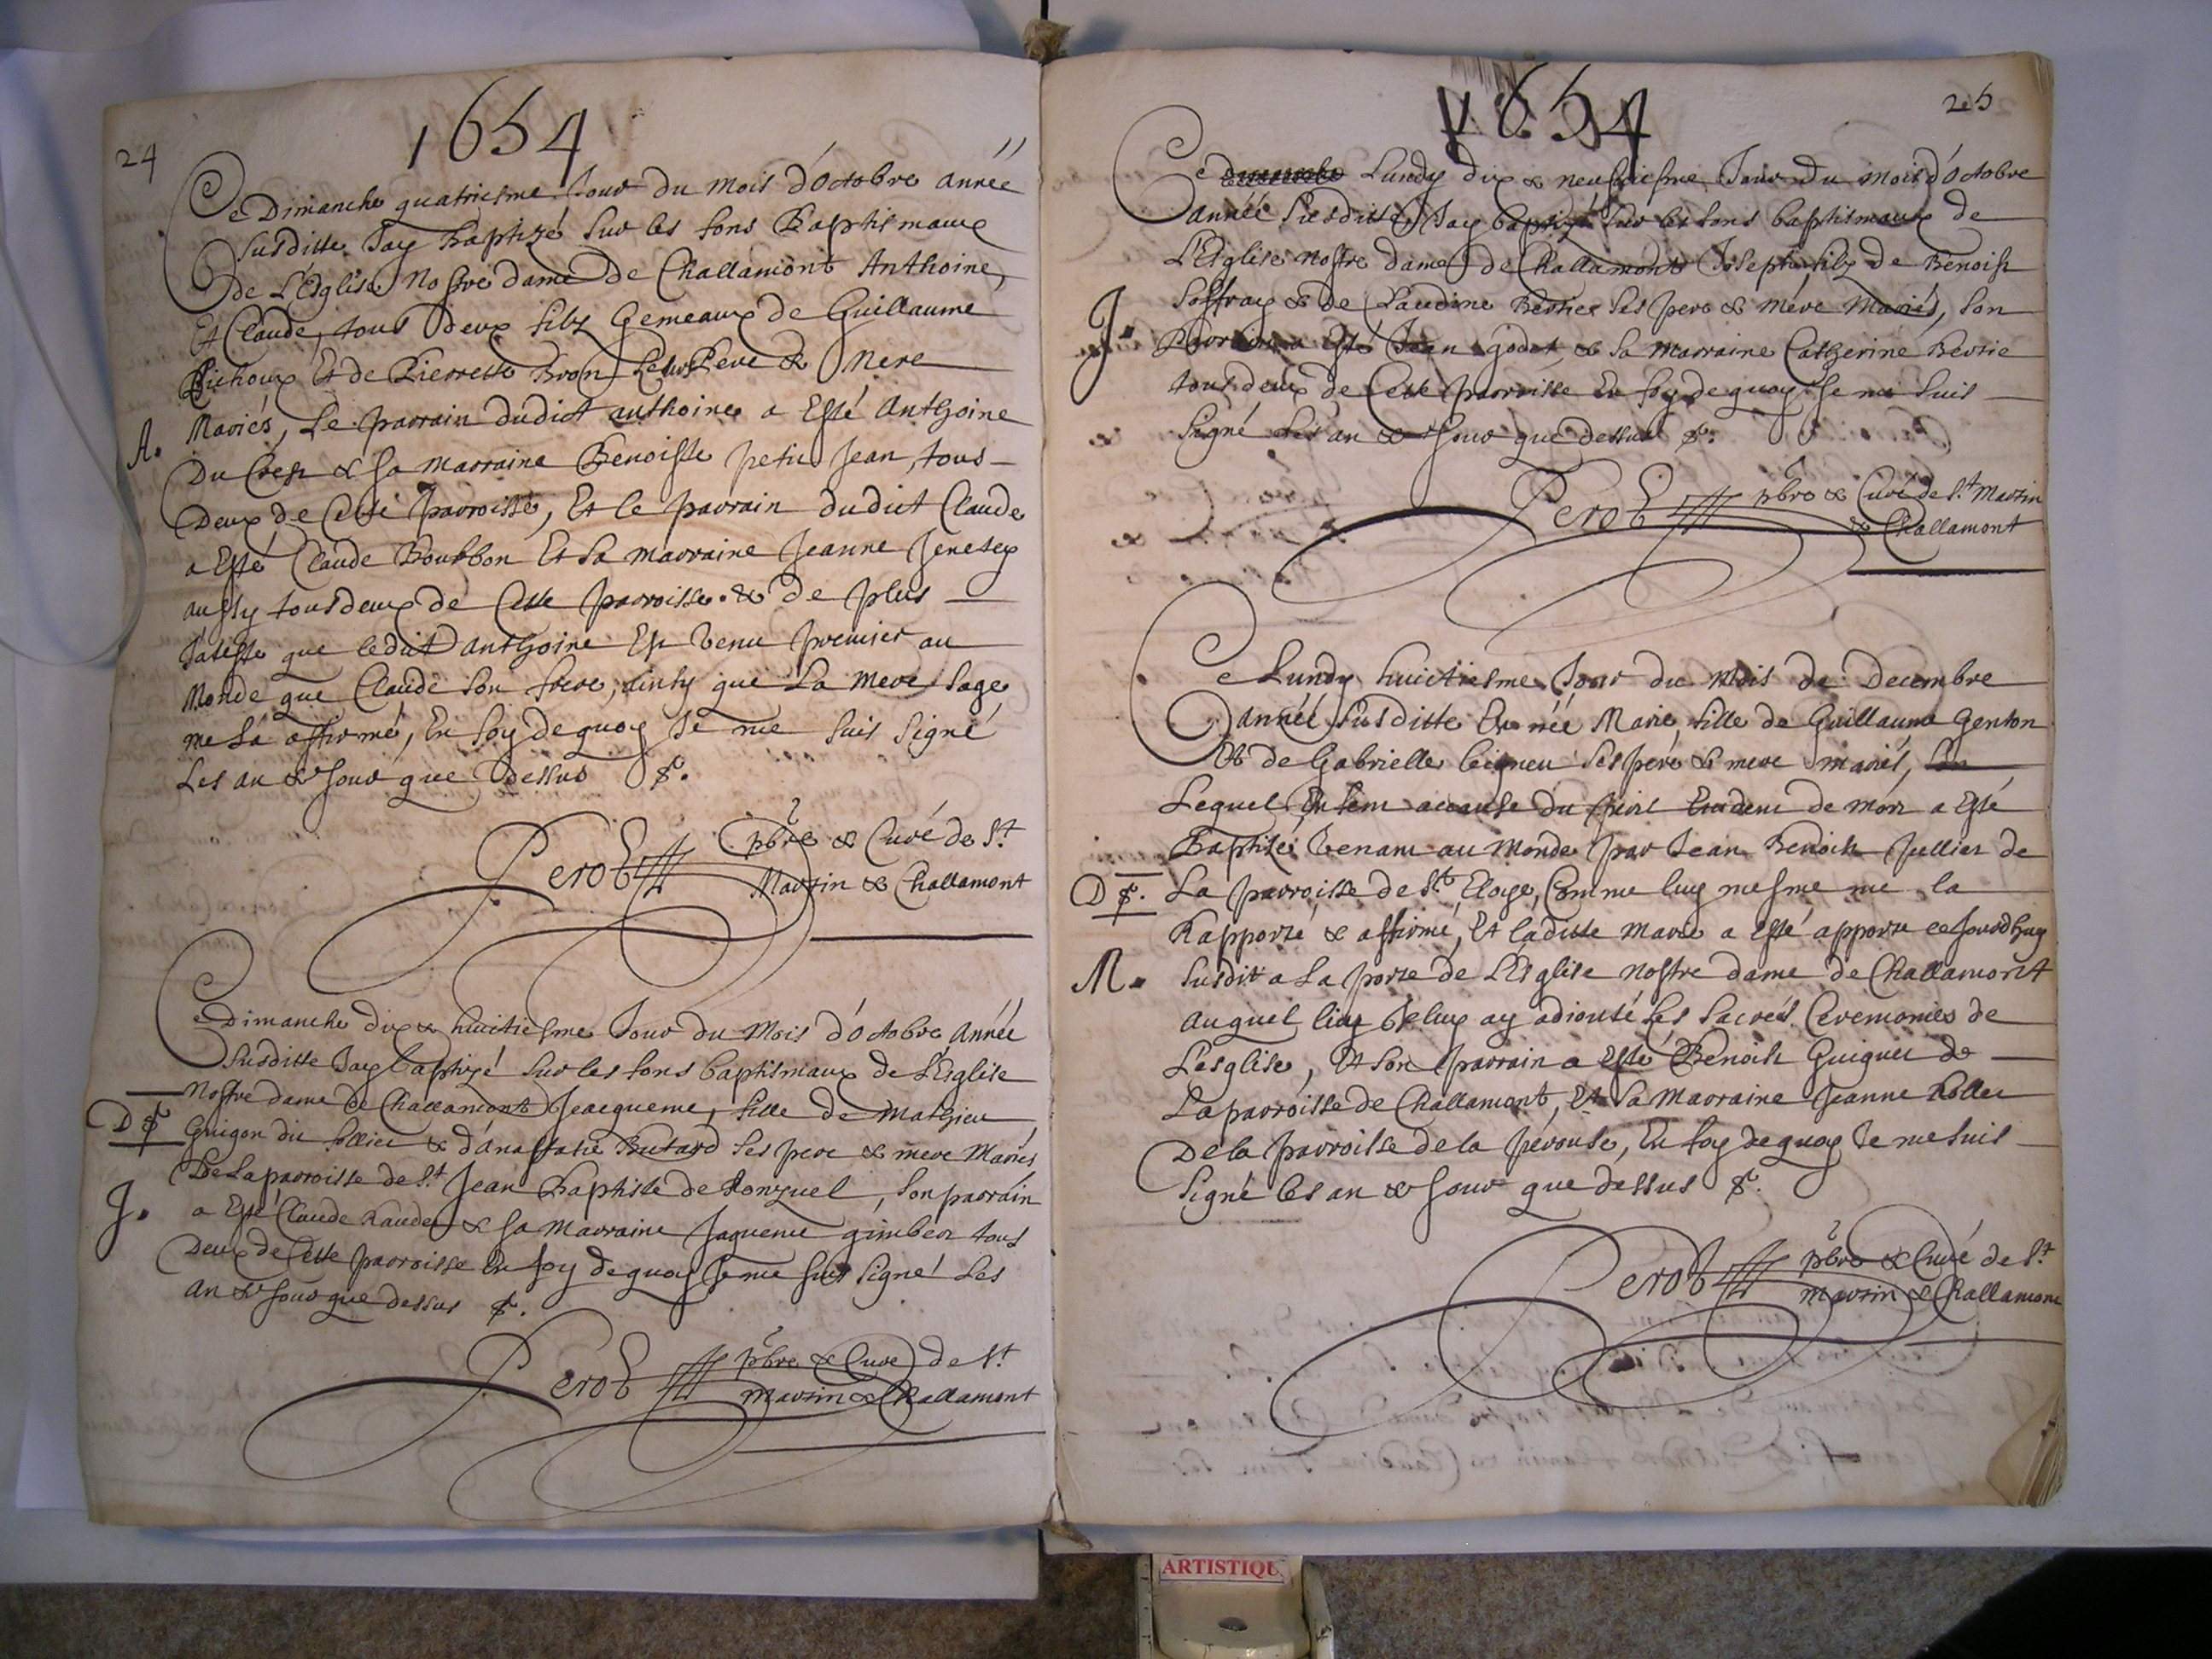 24
1654
Ce Dimanche quatriesme Jour du mois d'Octobre année
susditte Jay Baptizé sur les fons Baptismaux
de L'Esglise Nostre dame de Challamont Anthoine,
Et Claude, tous deux filz Gemeaux de Guillaume
Pichoux Et de Pierrette Bron Leur Pere & Mere
Mariés, Le parrain dudict anthoine a Esté Anthoine
A.
Du Crest & sa marraine Benoiste petit Jean, tous
Deux de Cette Parroisse, Et le parrain dudit Claude
a Esté Claude Bourbon Et sa marraine Jeanne
aussy tous deux de Cette parroisse. & de plus
Jateste que ledit anthoine Est venu premier au
Monde que Claude son frere, ainsy que La mere sage
me la affirmé, En foy de quoy Je me suis signé
Les an & Jour que dessus &.
Perot pbre & Curé de St
Martin & Challamont
Ce Dimanche dix & huictiesme Jour du Mois d'Octobre Année
susditte Jay baptizé sur les fons baptismaux de L'Esglise
Nostre dame de Challamont Jeacqueme, fille de Mathieu
D &
Guigon dit & d'Anastasie Butard ses pere & mere Mariés,
De La parroisse de St Jean Baptiste de Ronzuel, son parrain
J.
a Esté Claude & sa Marraine Jaqueme gimbert tous
Deux de Cette parroisse En foy de quoy Je me suis signé Les
an & Jour que dessus &.
Perot pbre & Curé de St
Martin & Challamont
25
1654
Ce Lundy dix & neufviesme Jour du mois d'Octobre
année susditte Jay baptizé sur les fons baptismaux de
L'Esglise nostre dame de Challamont Joseph filz de Benoist
Joffray & de Claudine Bertier ses pere & mere Mariés, son
J.
Parrain a Esté Jean godet & sa marraine Catherine Bertie
tous deux de Cette parroisse En foy de quoy Je me suis
signé Les an & Jour que dessus &.
Perot pbre & Curé de St Martin
& Challamont
Ce Lundy huictiesme Jour du Mois de Decembre
année susditte Est née Marie, fille de Guillaume Genton
Et de Gabrielle ses pere & mere mariés,
Lequel Enfant accause du peril Evident de mort a Esté
Baptisé venant au Monde par Jean Benoist Jullier de
D &.
La parroisse de St Eloye, Comme luy mesme me la
Rapporté & affirmé, Et laditte Marie a Esté apporté ce Jourdhuy
M.
susdit a La porte de L'Esglise nostre dame de Challamont
auquel lieu Je luy ay adiouté Les sacrés Ceremonies de
L'esglise, Et son parrain a Esté Benoist Guigues de
La parroisse de Challamont, Et sa Marraine Jeanne
De la parroisse de la perouse, En foy de quoy Je me suis
signé les an & Jour que dessus &.
Perot pbre & Curé de St
Martin & Challamont
ARTISTIQU